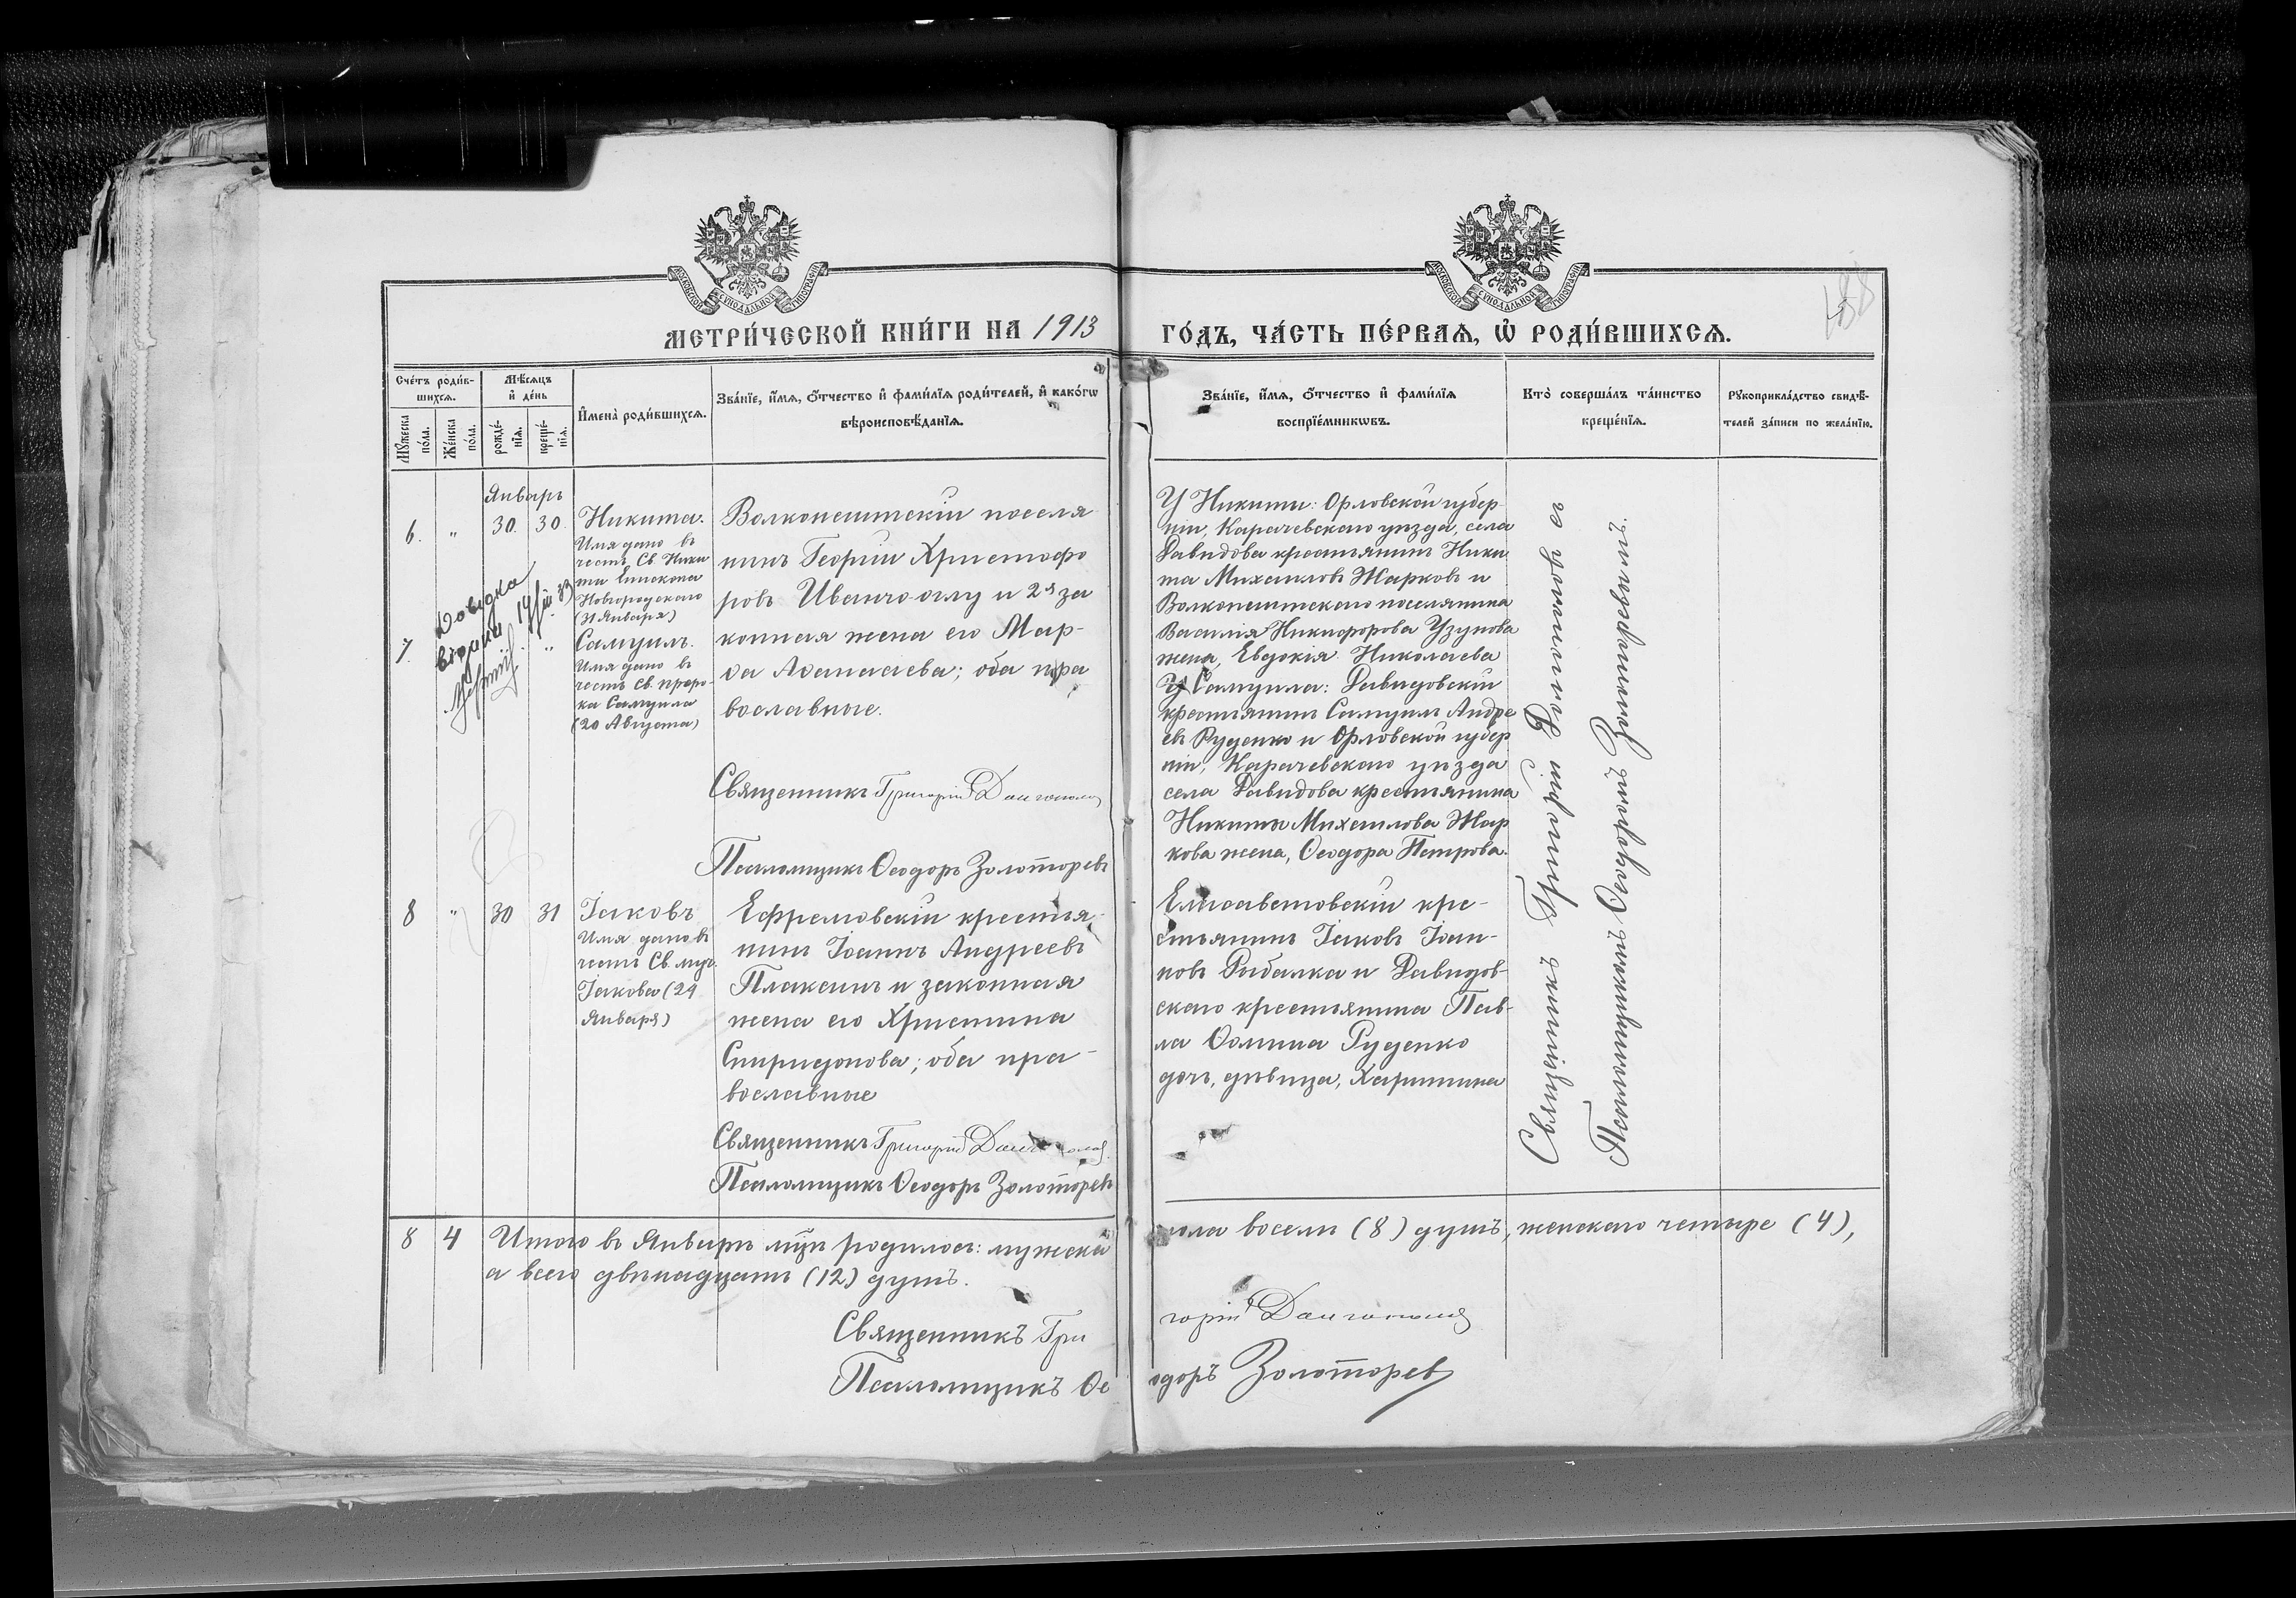 МОСКОВСКОЙ СѴНОДАЛЬНОЙ ТИПОГРАФІИ
МОСКОВСКОЙ СѴНОДАЛЬНОЙ ТИПОГРАФІИ
МЕТРИ́ЧЕСКОЙ КНИ́ГИ НА 1913
ГО́ДЪ, ЧА́СТЬ ПЕ́РВАѦ, Ѡ҆ РОДИ́ВШИХСѦ.
Сче́тъ роди́в-
шихсѧ.
Мꙋ́жеска по́ла.
Же́нска по́ла.
Мѣ́сѧцъ
и҆ де́нь
рожде́-
нїѧ.
креще́-
нїѧ.
И҆мена̀ роди́вшихсѧ.
Зва́нїе, и҆́мѧ, ѻ҆́тчество и҆ фами́лїѧ роди́телей, и҆ како́гѡ
вѣроисповѣ́данїѧ.
Зва́нїе, и҆́мѧ, ѻ҆́тчество и҆ фами́лїѧ
воспрїе́мникѡвъ.
Кто̀ соверша́лъ та́инство
креще́нїѧ.
Рꙋкоприкла́дство свидѣ́-
телей за́писи по жела́нїю.
Январь
6. " 30. 30.
Никита.
Имя дано въ
честь Св. Ники
ты Епископа
Новгородскаго
(31 Января)
7. "
Самуилъ.
Имя дано въ
честь Св. проро-
ка Самуила
(20 Августа)
Довідка
видана
Волконештскій поселя
нинъ Георгій Христофо
ровъ Иванго-оглу и 2ая за
конная жена его Мар-
ѳа Аѳанасіева; оба пра
вославные.
Священникъ Григорій
Псаломщикъ Ѳеодоръ Золоторевъ
У Никиты: Орловской губер-
ніи, Карачевскаго уѣзда, села
Давидова крестьянинъ Ники
та Михаиловъ Жарковъ и
Волконештскаго поселянина
Василія Никифорова Узунова
жена, Евдокія Николаева
У Самуила: Давидовскій
крестьянинъ Самуилъ Андре
евъ Руденко и Орловской губер
ніи, Карачевскаго уѣзда
села Давидова крестьянина
Никиты Михаилова Жар
кова жена, Ѳеодора Петрова.
8 " 30 31
Іаковъ
Имя дано въ
честь Св. муч.
Іакова (24
Января)
Ефремовскій крестья-
нинъ Іоаннъ Андреевъ
Плаксинъ и законная
жена его Христина
Спиридонова; оба пра-
вославные
Священникъ Григорій
Псаломщикъ Ѳеодоръ Золоторевъ
Елисаветовскій кре-
стьянинъ Іаковъ Іоан-
новъ Рыбалка и Давидов-
скаго крестьянина Пав-
ла Ѳомина Руденко
дочь, дѣвица, Харитина
Священникъ Григорій съ
Псаломщикомъ Ѳеодоромъ
8 4 Итого въ Январѣ мцѣ родилось: мужска
пола восемь (8) душъ, женскаго четыре (4),
а всего двѣнадцать (12) душъ.
Священникъ Гри
горій
Псаломщикъ Ѳе
одоръ Золоторевъ